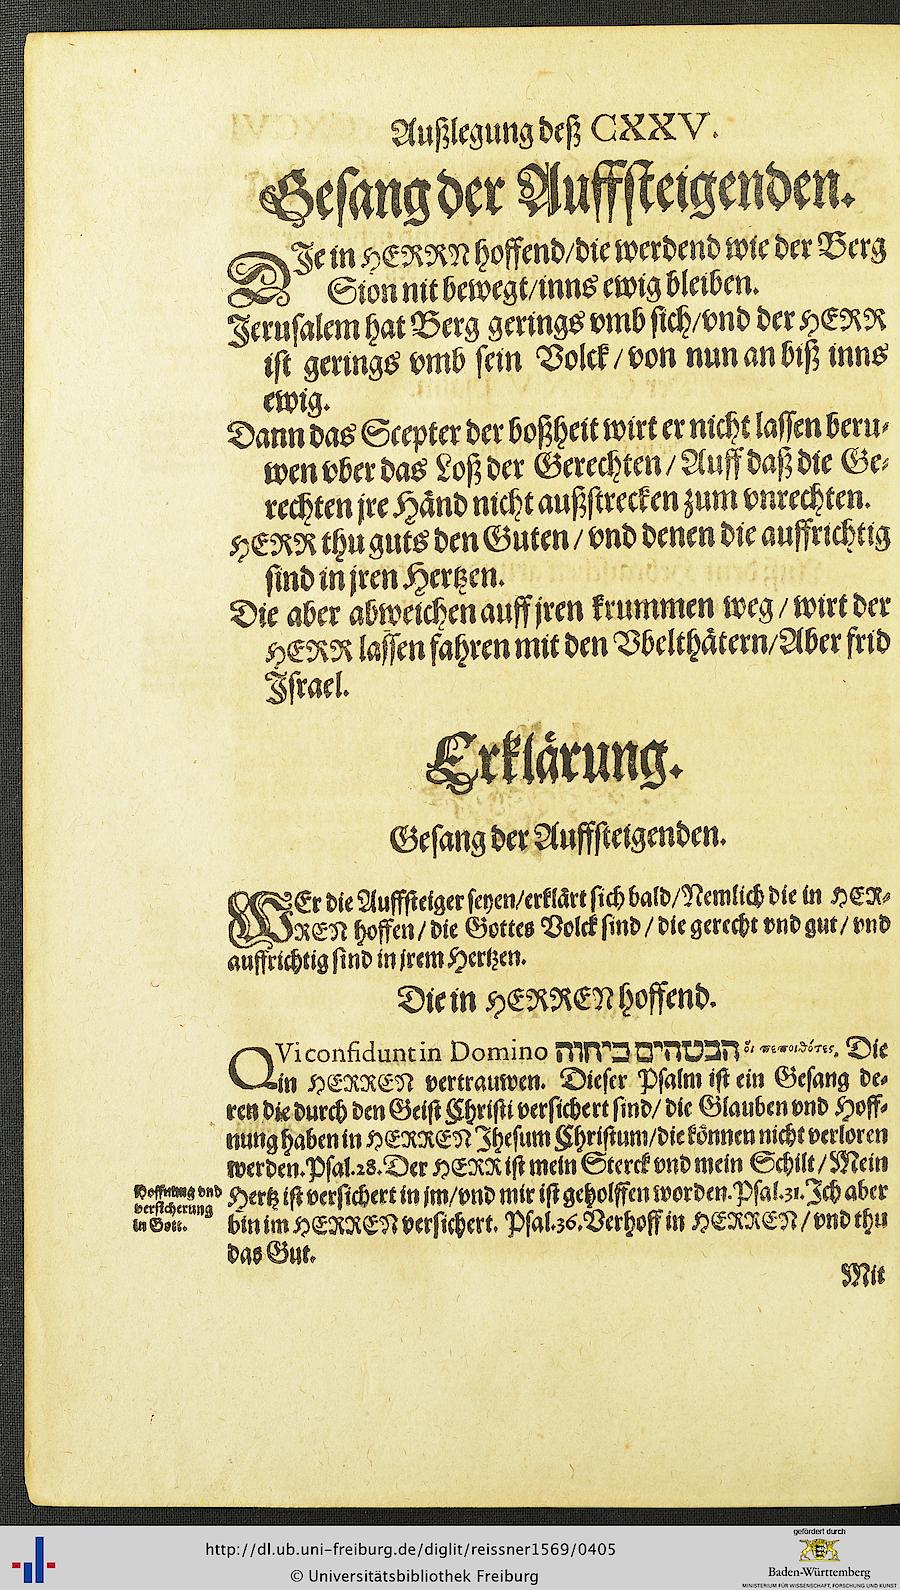 Außlegung deß CXXV.
Gesang der Auffsteigenden.
DIe in HERRN hoffend/die werdend wie der Berg
Sion nit bewegt/inns ewig bleiben.
Jerusalem hat Berg gerings vmb sich/vnd der HERR
ist gerings vmb sein Volck/von nun an biß inns
ewig.
Dann das Scepter der boßheit wirt er nicht lassen beru-
wen vber das Loß der Gerechten/Auff daß die Ge-
rechten jre Händ nicht außstrecken zum vnrechten.
HERR thu guts den Guten/vnd denen die auffrichtig
sind in jren Hertzen.
Die aber abweichen auff jren krummen weg/wirt der
HERR lassen fahren mit den Vbelthätern/Aber frid
Jsrael.
Erklärung.
Gesang der Auffsteigenden.
WEr die Auffsteiger seyen/erklärt sich bald/Nemlich die in HER-
REN hoffen/die Gottes Volck sind/die gerecht vnd gut/vnd
auffrichtig sind in jrem Hertzen.
Die in HERREN hoffend.
QVi confidunt in Domino הבטהים ביחוה οἱ πεποιθότες. Die
in HERREN vertrauwen. Dieser Psalm ist ein Gesang de-
ren die durch den Geist Christi versichert sind/die Glauben vnd Hoff-
nung haben in HERREN Jhesum Christum/die können nicht verloren
werden. Psal.28. Der HERR ist mein Sterck vnd mein Schilt/Mein
Hoffnung vnd
versicherung
in Gott.
Hertz ist versichert in jm/vnd mir ist geholffen worden. Psal.31. Jch aber
bin im HERREN versichert. Psal.36. Verhoff in HERREN/vnd thu
das Gut.
Mit
http://dl.ub.uni-freiburg.de/diglit/reissner1569/0405
© Universitätsbibliothek Freiburg
gefördert durch
Baden-Württemberg
MINISTERIUM FÜR WISSENSCHAFT, FORSCHUNG UND KUNST